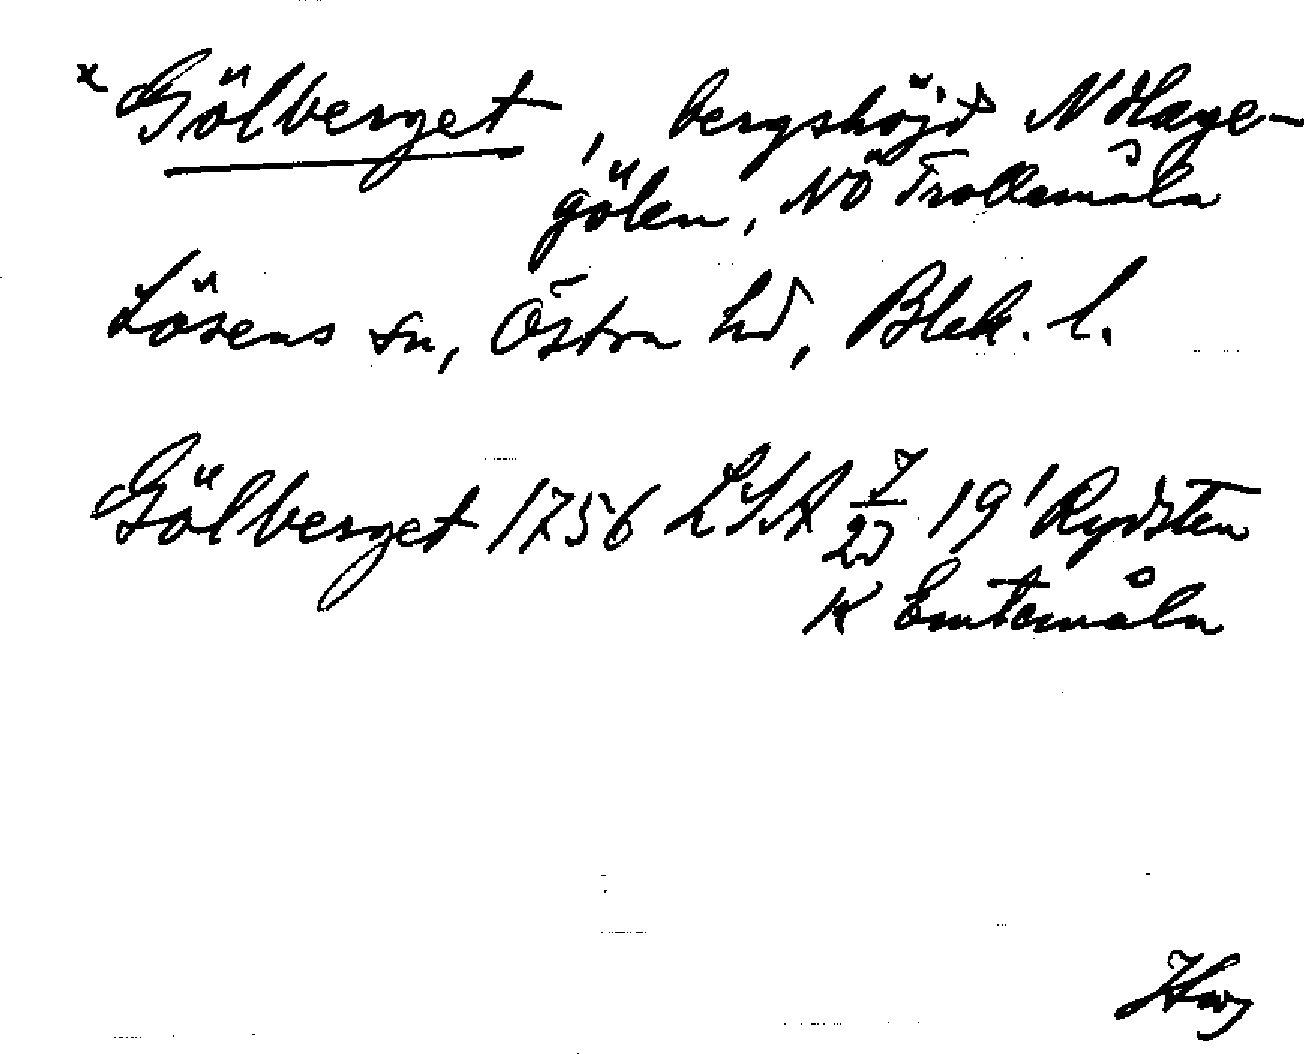 x Gölberget, bergshöjd N Hage-
gölen, NÖ Trollemåla
Lösens sn, Östra hd, Blek. l.
Gölberget 1756 LSA 7/23 19' Rydsten
K Emtemåla